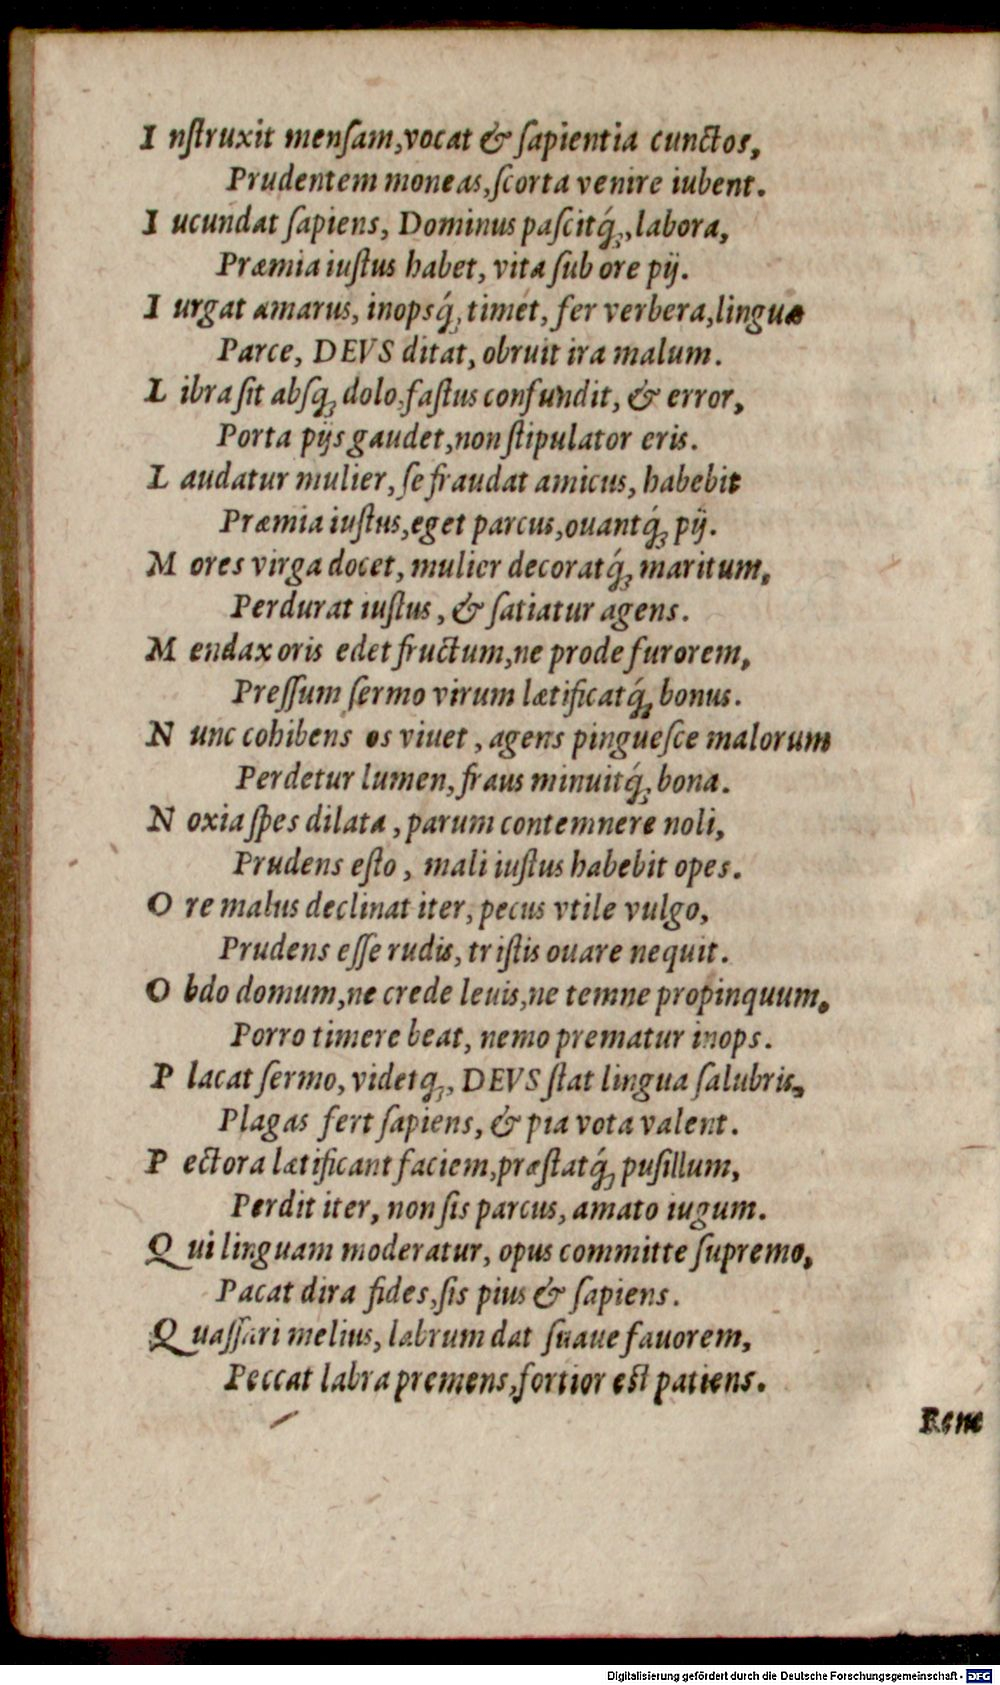 I nſtruxit menſam,vocat & ſapientia cunctos,
Prudentem moneas,ſcorta venire iubent.
I ucundat ſapiens, Dominus paſcitq́;,labora,
Præmia iuſtus habet, vita ſub ore pij.
I urgat amarus, inopsq́; timet, fer verbera,linguæ
Parce, DEVS ditat, obruit ira malum.
L ibra ſit abſq; dolo,faſtus confundit, & error,
Porta pijs gaudet,non ſtipulator eris.
L audatur mulier, ſe fraudat amicus, habebit
Præmia iuſtus,eget parcus,ouantq́; pij.
M ores virga docet, mulier decoratq́; maritum,
Perdurat iuſtus, & ſatiatur agens.
M endax oris edet fructum,ne prode furorem,
Preſſum ſermo virum lætificatq́; bonus.
N unc cohibens os viuet, agens pingueſce malorum
Perdetur lumen, fraus minuitq́; bona.
N oxia ſpes dilata, parum contemnere noli,
Prudens eſto, mali iuſtus habebit opes.
O re malus declinat iter, pecus vtile vulgo,
Prudens eſſe rudis, triſtis ouare nequit.
O bdo domum,ne crede leuis,ne temne propinquum,
Porro timere beat, nemo prematur inops.
P lacat ſermo, videtq;, DEVS ſtat lingua ſalubris,
Plagas fert ſapiens, & pia vota valent.
P ectora lætificant faciem,præſtatq́; puſillum,
Perdit iter, non ſis parcus, amato iugum.
Q ui linguam moderatur, opus committe ſupremo,
Pacat dira fides,ſis pius & ſapiens.
Q uaſſari melius, labrum dat ſuaue fauorem,
Peccat labra premens,fortior eſt patiens.
Rene
Digitalisierung gefördert durch die Deutsche Forschungsgemeinschaft - DFG